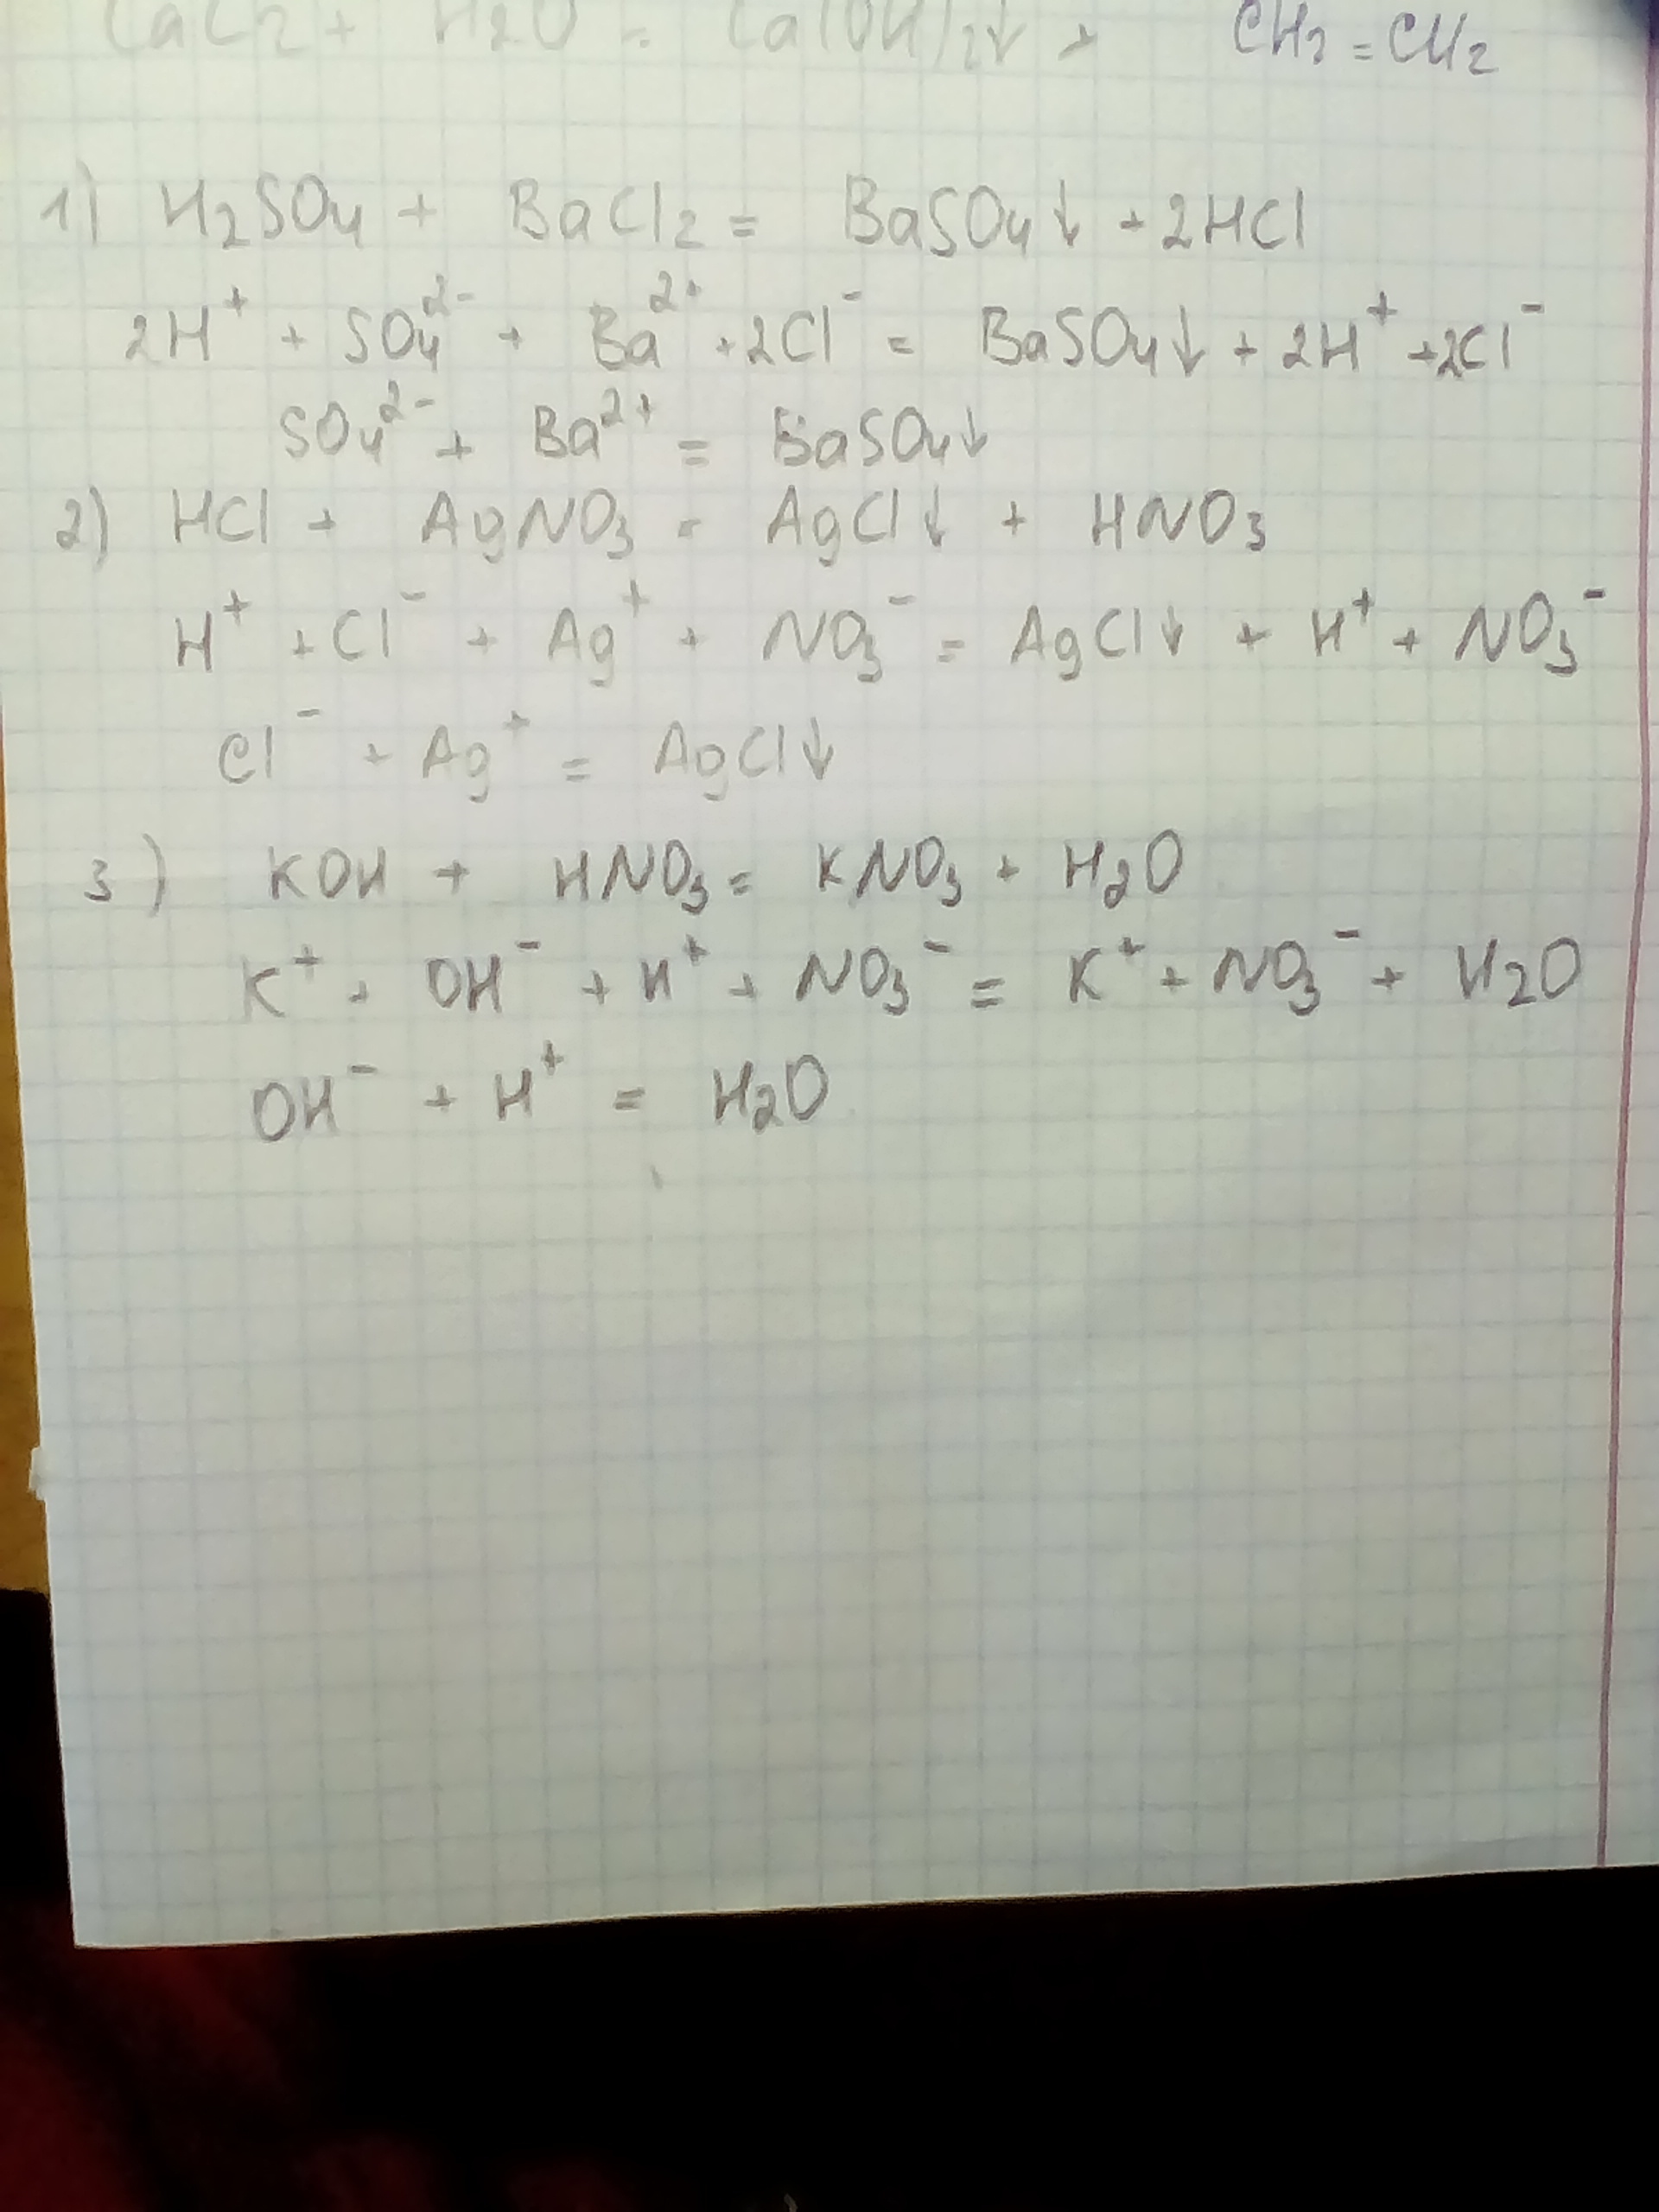 CaC2 + H2O = Ca(OH)2↓ + CH2 = CH2
1) H2SO4 + BaCl2 = BaSO4↓ + 2HCl
2H⁺ + SO4²⁻ + Ba²⁺ + 2Cl⁻ = BaSO4↓ + 2H⁺ + 2Cl⁻
SO4²⁻ + Ba²⁺ = BaSO4↓
2) HCl + AgNO3 = AgCl↓ + HNO3
H⁺ + Cl⁻ + Ag⁺ + NO3⁻ = AgCl↓ + H⁺ + NO3⁻
Cl⁻ + Ag⁺ = AgCl↓
3) KOH + HNO3 = KNO3 + H2O
K⁺ + OH⁻ + H⁺ + NO3⁻ = K⁺ + NO3⁻ + H2O
OH⁻ + H⁺ = H2O